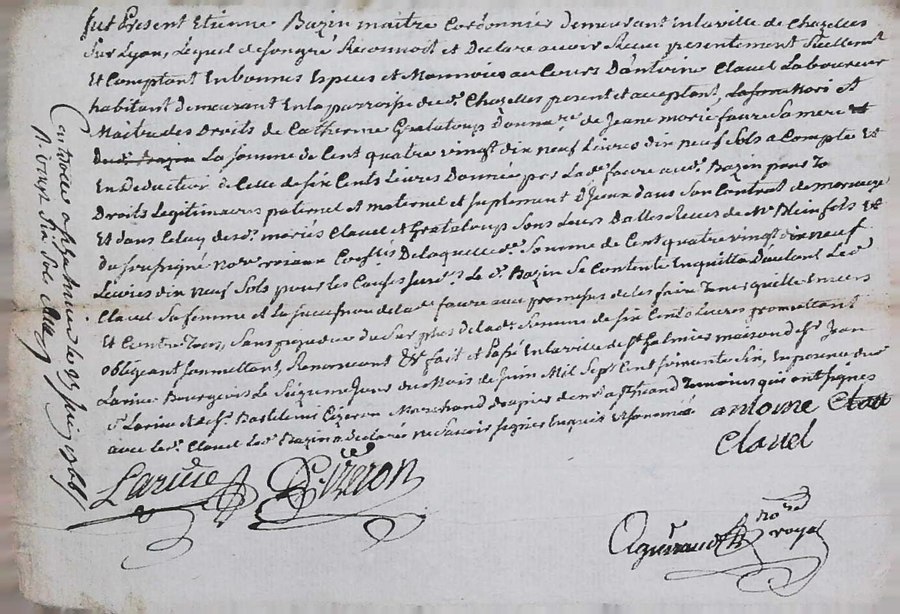 fut Présent Etienne Bazin maitre Cordonnier demeurant en la ville de Chazelles
Sur Lyon, Lequel de son gré Reconnoit et Declare avoir Receu presentement Reellemt
Et Comptant En bonnes Especes et Monnoies au Cours D'antoine Claud Laboureur
habitant demeurant En la parroisse dud. Chazelles present et acceptant,
Maitre des Droits de Catherine Grataloup Donnre. de Jeane marie faure Sa mere
La somme de Cent quatre vingt dix neuf Livres dix neuf Sols a Compte Et
En Deduction de Celle de six Cents Livres Donnée par Lade. faure aud. Bazin pour
Droits Legitimaires paternel et maternel et suplement D'Iceux dans Son Contrat de mariage
Et dans Celuy desd. maries Claud et Grataloup Sous Leurs Dattes Receus de Me
du soussigné nore. royaux De laquelle de. Somme de Cent quatre vingt dix neuf
Livres dix neuf Sols pour les Causes Le d. Bazin Se Contente En quitte Led.
Claud Sa femme et la succession de lade. faure aux promesses de les faire Tenir quitte Envers
Et Contre Tous, Sans prejudice du Surplus de lade. Somme de six Cents Livres promettant
obligeant Soumettant, Renonceant &c fait et Passé En la ville de St. Galmier maison de Sr. Jean
Larive Bourgeois Le Seizieme Jour du Mois de Juin Mil Sept Cent soixante Six, En presence dud
Sr. Larive et de Sr. Barthelemi Cizeron Marchand Temoins qui ont signés
avec led. Claud Led. Bazin a declaré ne Savoir signer Enquis et Sommé
antoine
Claud
Larive
Cizeron
nore
royal
Controllé a St. Galmier le 25 Juin 1766
Sols